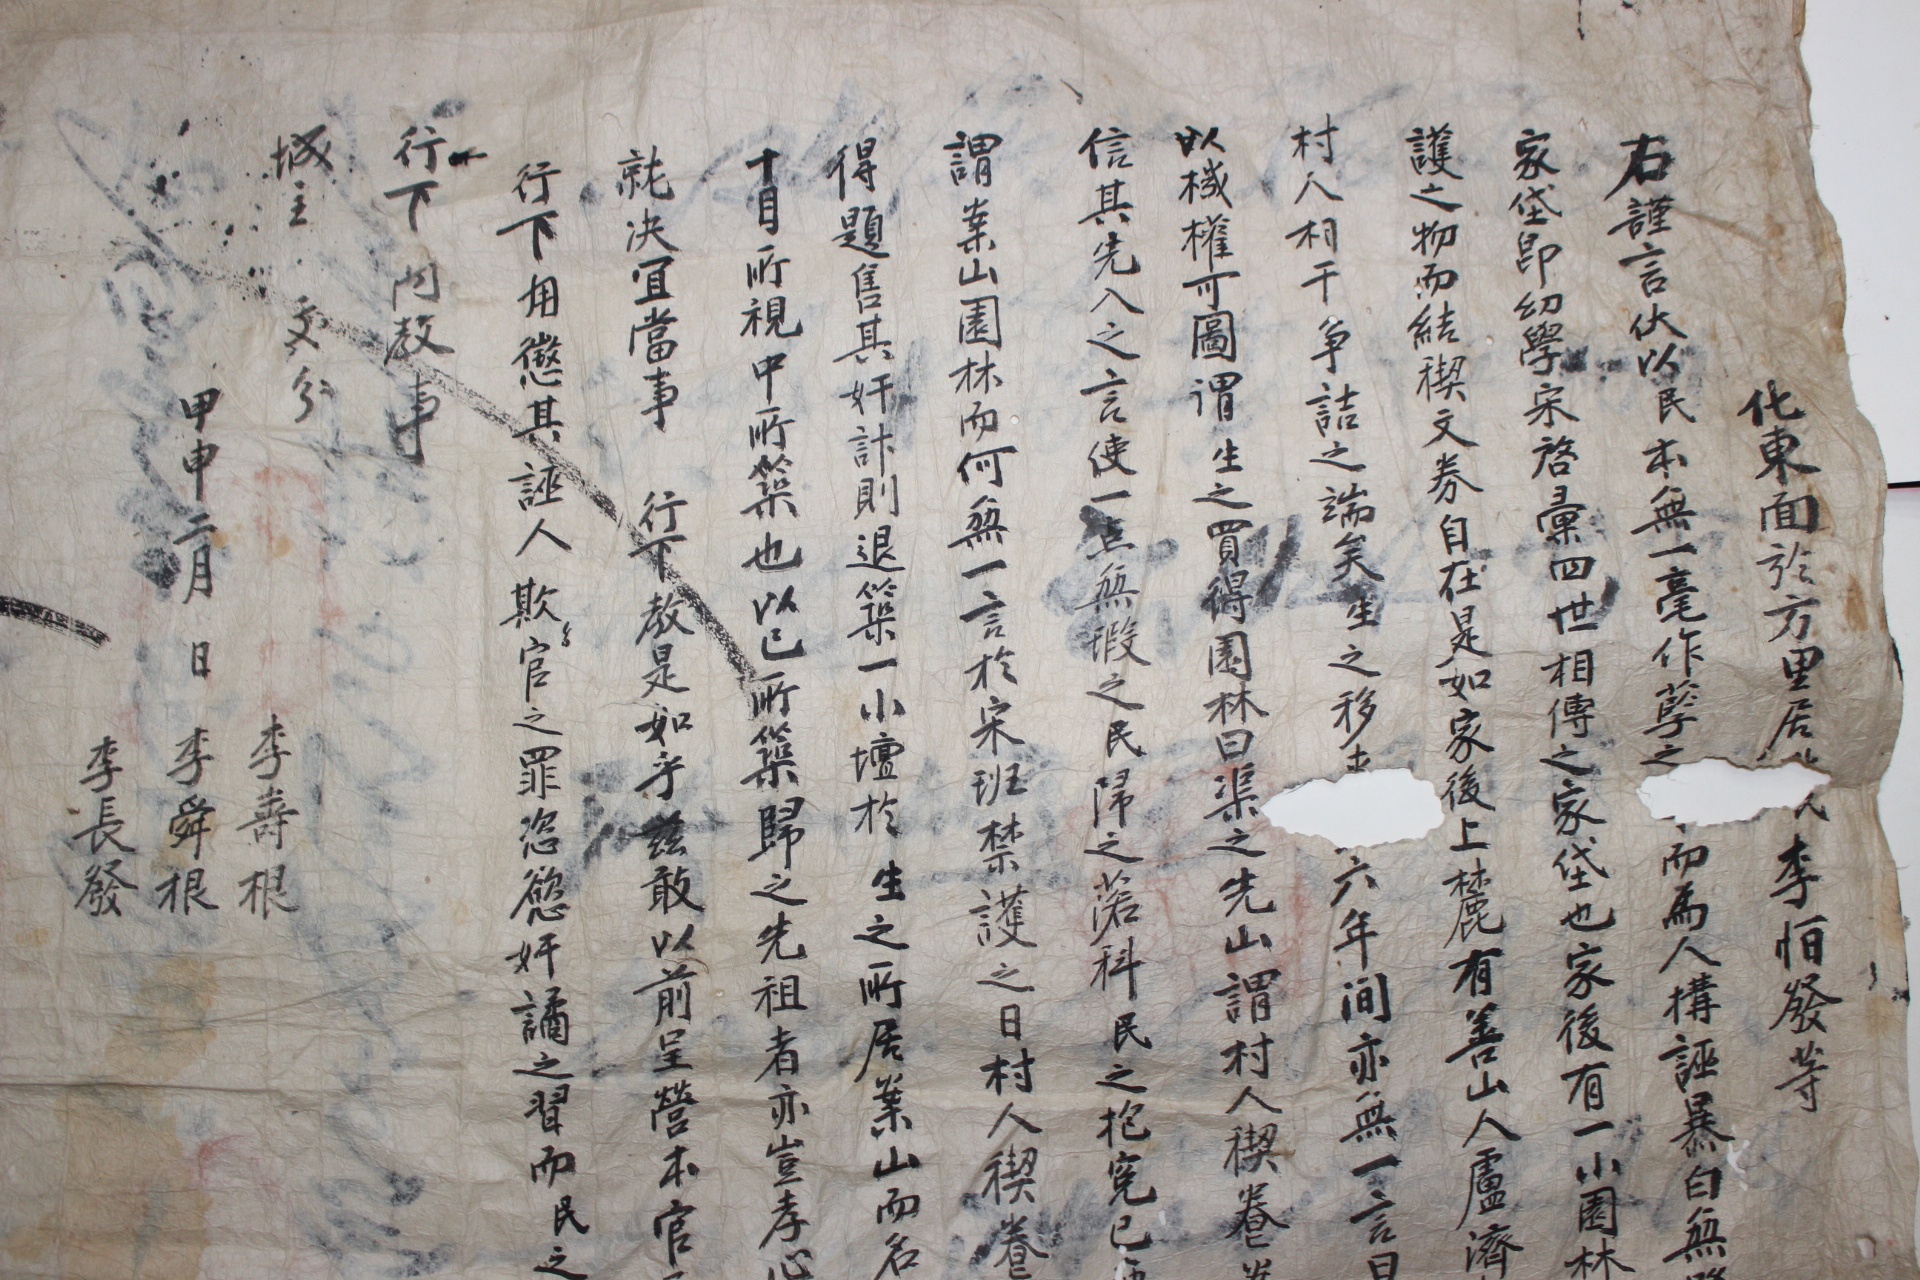 化東面於方里居 李怕發等
右謹言伏以民本無一毫作孽之 而爲人構誣暴白無
家垈卽幼學宋啓彙四世相傳之家垈也家後有一小園林
護之物而結稧文券自在是如家後上麓有善山人盧濟
村人相干爭詰之端矣生之移 六年間亦無一言曰
以機權可圖謂生之買得園林曰渠之先山謂村人稧卷
信其先入之言使一点無瑕之民歸之落科民之抱寃已
謂案山園林而何無一言於宋班禁護之日村人稧卷
得題售其奸計則退築一小壇於生之所居案山而名
十目所視中所築也以已所築歸之先祖者亦豈孝心
就決宜當事 行下教是如乎玆敢以前呈營本官
行下用懲其誣人欺官之罪恣慾奸譎之習而民之
行下向教事
城主 處分
甲申二月 日 李壽根
李舜根
李長發